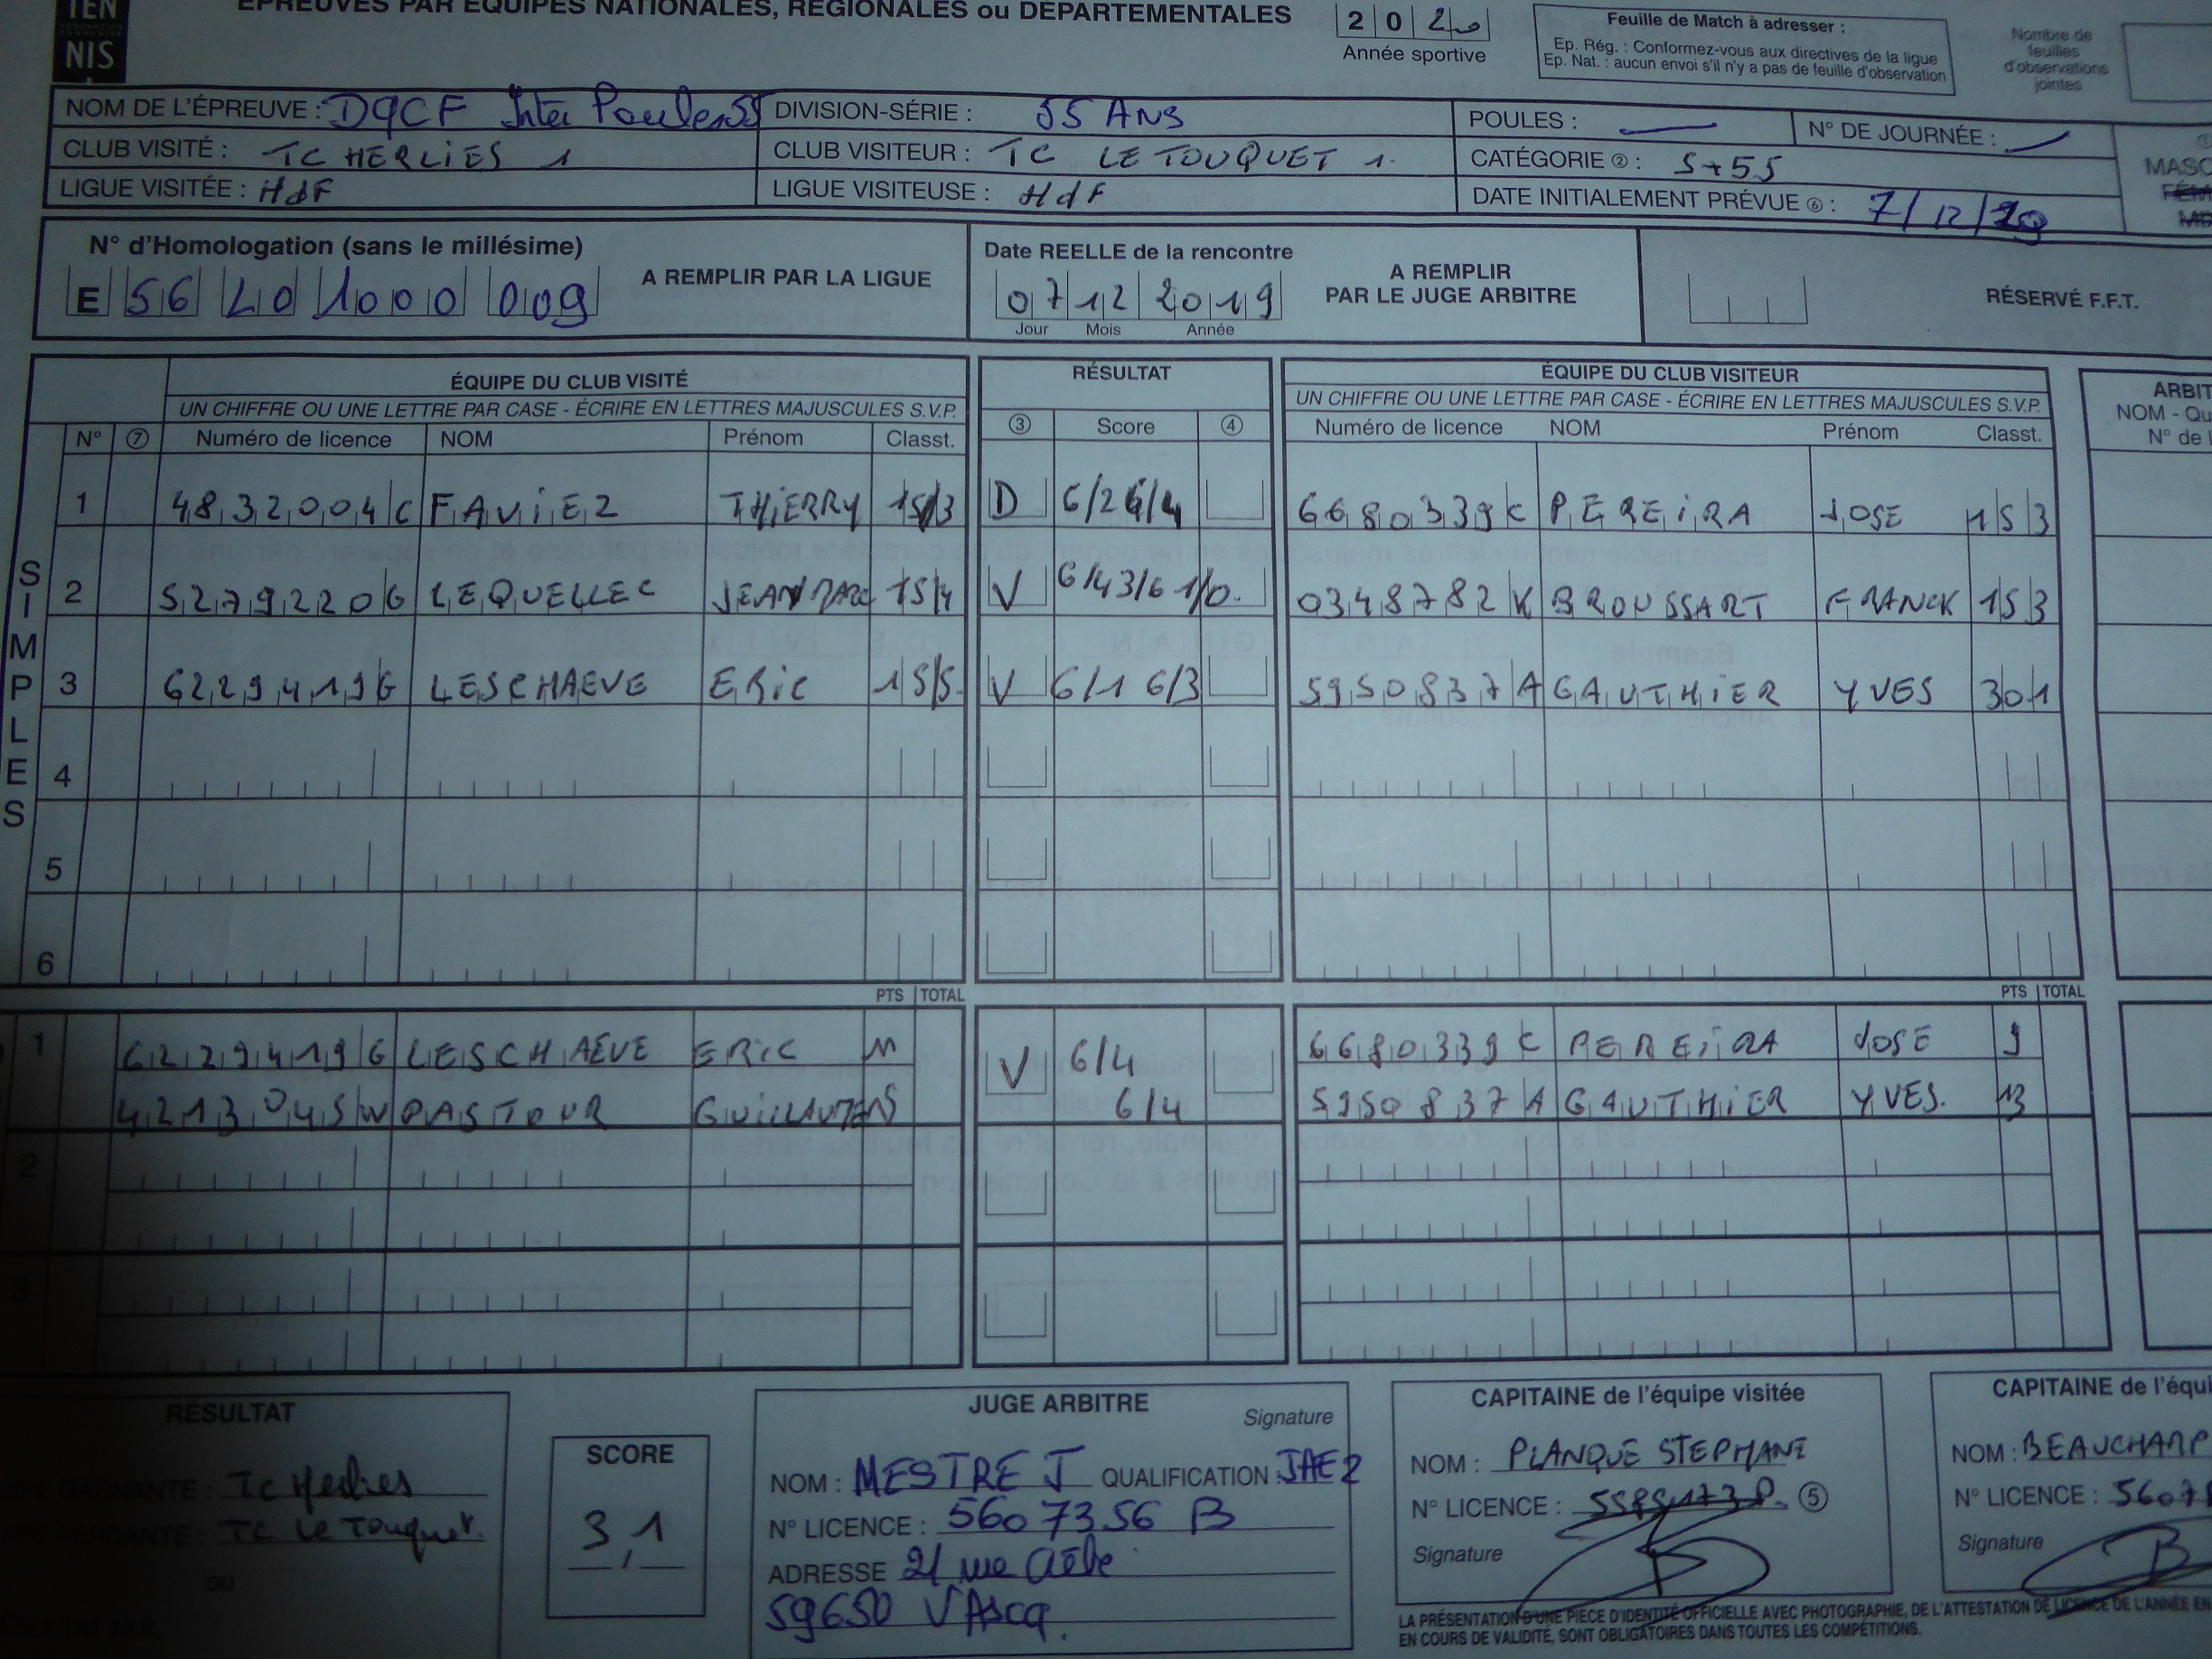 TEN
NIS
ÉPREUVES PAR ÉQUIPES NATIONALES, RÉGIONALES ou DÉPARTEMENTALES
2 0 2 0
Année sportive
Feuille de Match à adresser :
Ep. Rég. : Conformez-vous aux directives de la ligue
Ep. Nat. : aucun envoi s'il n'y a pas de feuille d'observation
Nombre de
feuilles
d'observations
jointes
NOM DE L'ÉPREUVE : DQCF Inter Poules 55 DIVISION-SÉRIE : 55 ANS POULES : — N° DE JOURNÉE : —
CLUB VISITÉ : TC HERLIES 1 CLUB VISITEUR : TC LE TOUQUET 1. CATÉGORIE ② : S+55
LIGUE VISITÉE : HdF LIGUE VISITEUSE : HdF DATE INITIALEMENT PRÉVUE ⑥ : 7/12/
MASC
FÉM
N° d'Homologation (sans le millésime)
E 56 L0 1000 009
A REMPLIR PAR LA LIGUE
Date REELLE de la rencontre
07 12 2019
Jour Mois Année
A REMPLIR
PAR LE JUGE ARBITRE
RÉSERVÉ F.F.T.
ÉQUIPE DU CLUB VISITÉ RÉSULTAT ÉQUIPE DU CLUB VISITEUR
UN CHIFFRE OU UNE LETTRE PAR CASE - ÉCRIRE EN LETTRES MAJUSCULES S.V.P. UN CHIFFRE OU UNE LETTRE PAR CASE - ÉCRIRE EN LETTRES MAJUSCULES S.V.P.
ARBIT
NOM - Qu
N° de l
N° ⑦ Numéro de licence NOM Prénom Classt. ③ Score ④ Numéro de licence NOM Prénom Classt.
SIMPLES
1 4832004C FAVIEZ THIERRY 15/3 D 6/2 6/4 6680339C PEREIRA JOSE 153
2 5279220G LEQUELLEC JEAN MARC 15/4 V 6/4 3/6 1/0. 0348782K BROUSSART FRANCK 153
3 6229419G LESCHAEVE ERIC 15/5 V 6/1 6/3 5950837A GAUTHIER YVES 301
4
5
6
PTS TOTAL PTS TOTAL
1 6229419G LESCHAEVE ERIC 11 V 6/4 6680339C PEREIRA JOSE 9
4213045W PASTOUR GUILLAUME 6/4 5950837A GAUTHIER YVES. 13
2
3
RÉSULTAT
GAGNANTE : TC Herlies
PERDANTE : TC Le Touquet.
OU
SCORE
3,1
JUGE ARBITRE
Signature
NOM : MESTRE J QUALIFICATION : JAE2
N° LICENCE : 5607356 B
ADRESSE 21 rue
59650 V Ascq.
CAPITAINE de l'équipe visitée
NOM : PLANQUE STEPHANE
N° LICENCE : ⑤
Signature
CAPITAINE de l'équi
NOM : BEAUCHAMP
N° LICENCE : 5607
Signature
LA PRÉSENTATION D'UNE PIECE D'IDENTITÉ OFFICIELLE AVEC PHOTOGRAPHIE, DE L'ATTESTATION DE LICENCE DE L'ANNÉE EN
EN COURS DE VALIDITÉ, SONT OBLIGATOIRES DANS TOUTES LES COMPÉTITIONS.